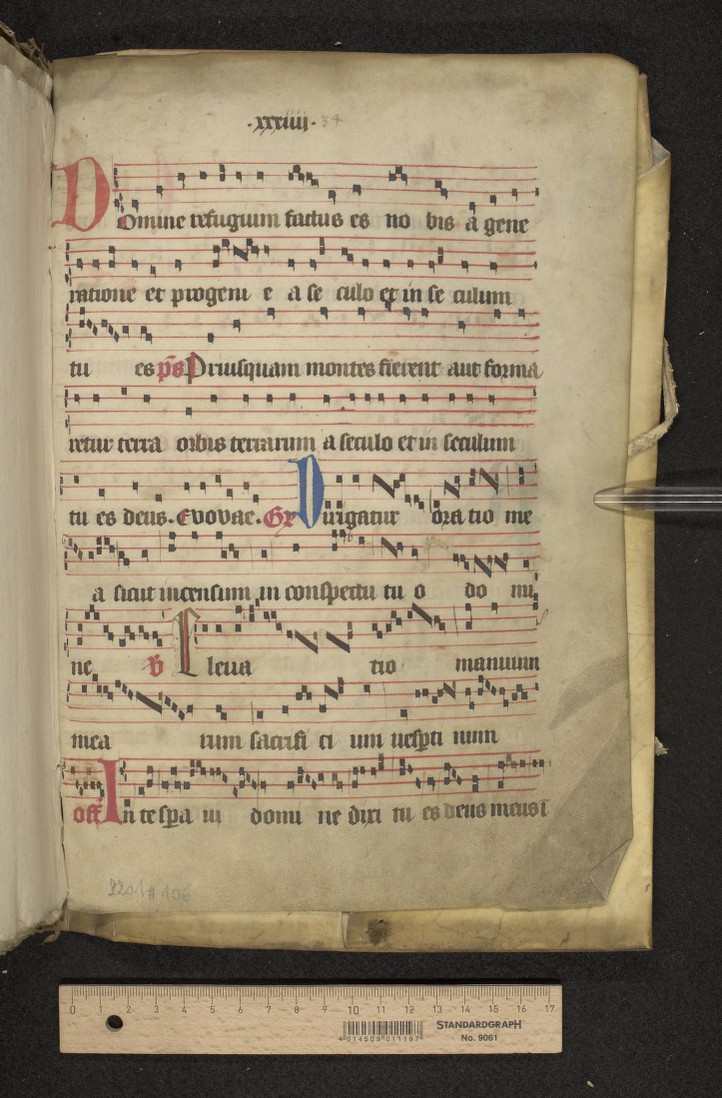 ·xxxiiij· 34
Domine refugium factus es no bis a gene
ratione et progeni e a se culo et in se culum
tu es ps Priusquam montes fierent aut forma
retur terra orbis terrarum a seculo et in seculum
tu es deus. Evovae. Gr Dirigatur ora tio me
a sicut incensum in conspectu tu o do mi
ne V Eleva tio manuum
mea rum sacrifi ci um vesperti num
off In te spera vi domi ne dixi tu es deus meus i
2201# 106
0 1 2 3 4 5 6 7 8 9 10 11 12 13 14 15 16 17
STANDARDGRAPH
No. 9061
4 014509 011197